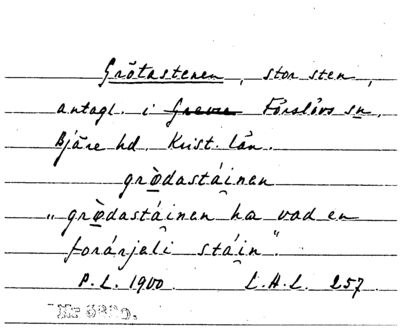 Grötastenen, stor sten,
antagl. i Grevie Förslövs sn.
Bjäre hd. Krist. län.
grödastáinen
"grödastáinen ha vad en
forárjeli stáin".
P.L. 1900. L.H.L. 257